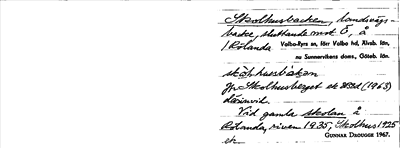 Skolhusbacken, landsvägs-
backe, sluttande mot Ö, å
1 Rölanda Valbo-Ryrs sn, förr Valbo hd, Älvsb. län,
nu Sunnervikens doms., Göteb. län.
skólhusbakən
Jfr Skolhusberget ek (1963)
därinvid.
Vid gamla skolan å
Rölanda, riven 1935; Skolhus 1925
ek
GUNNAR DROUGGE 1967.